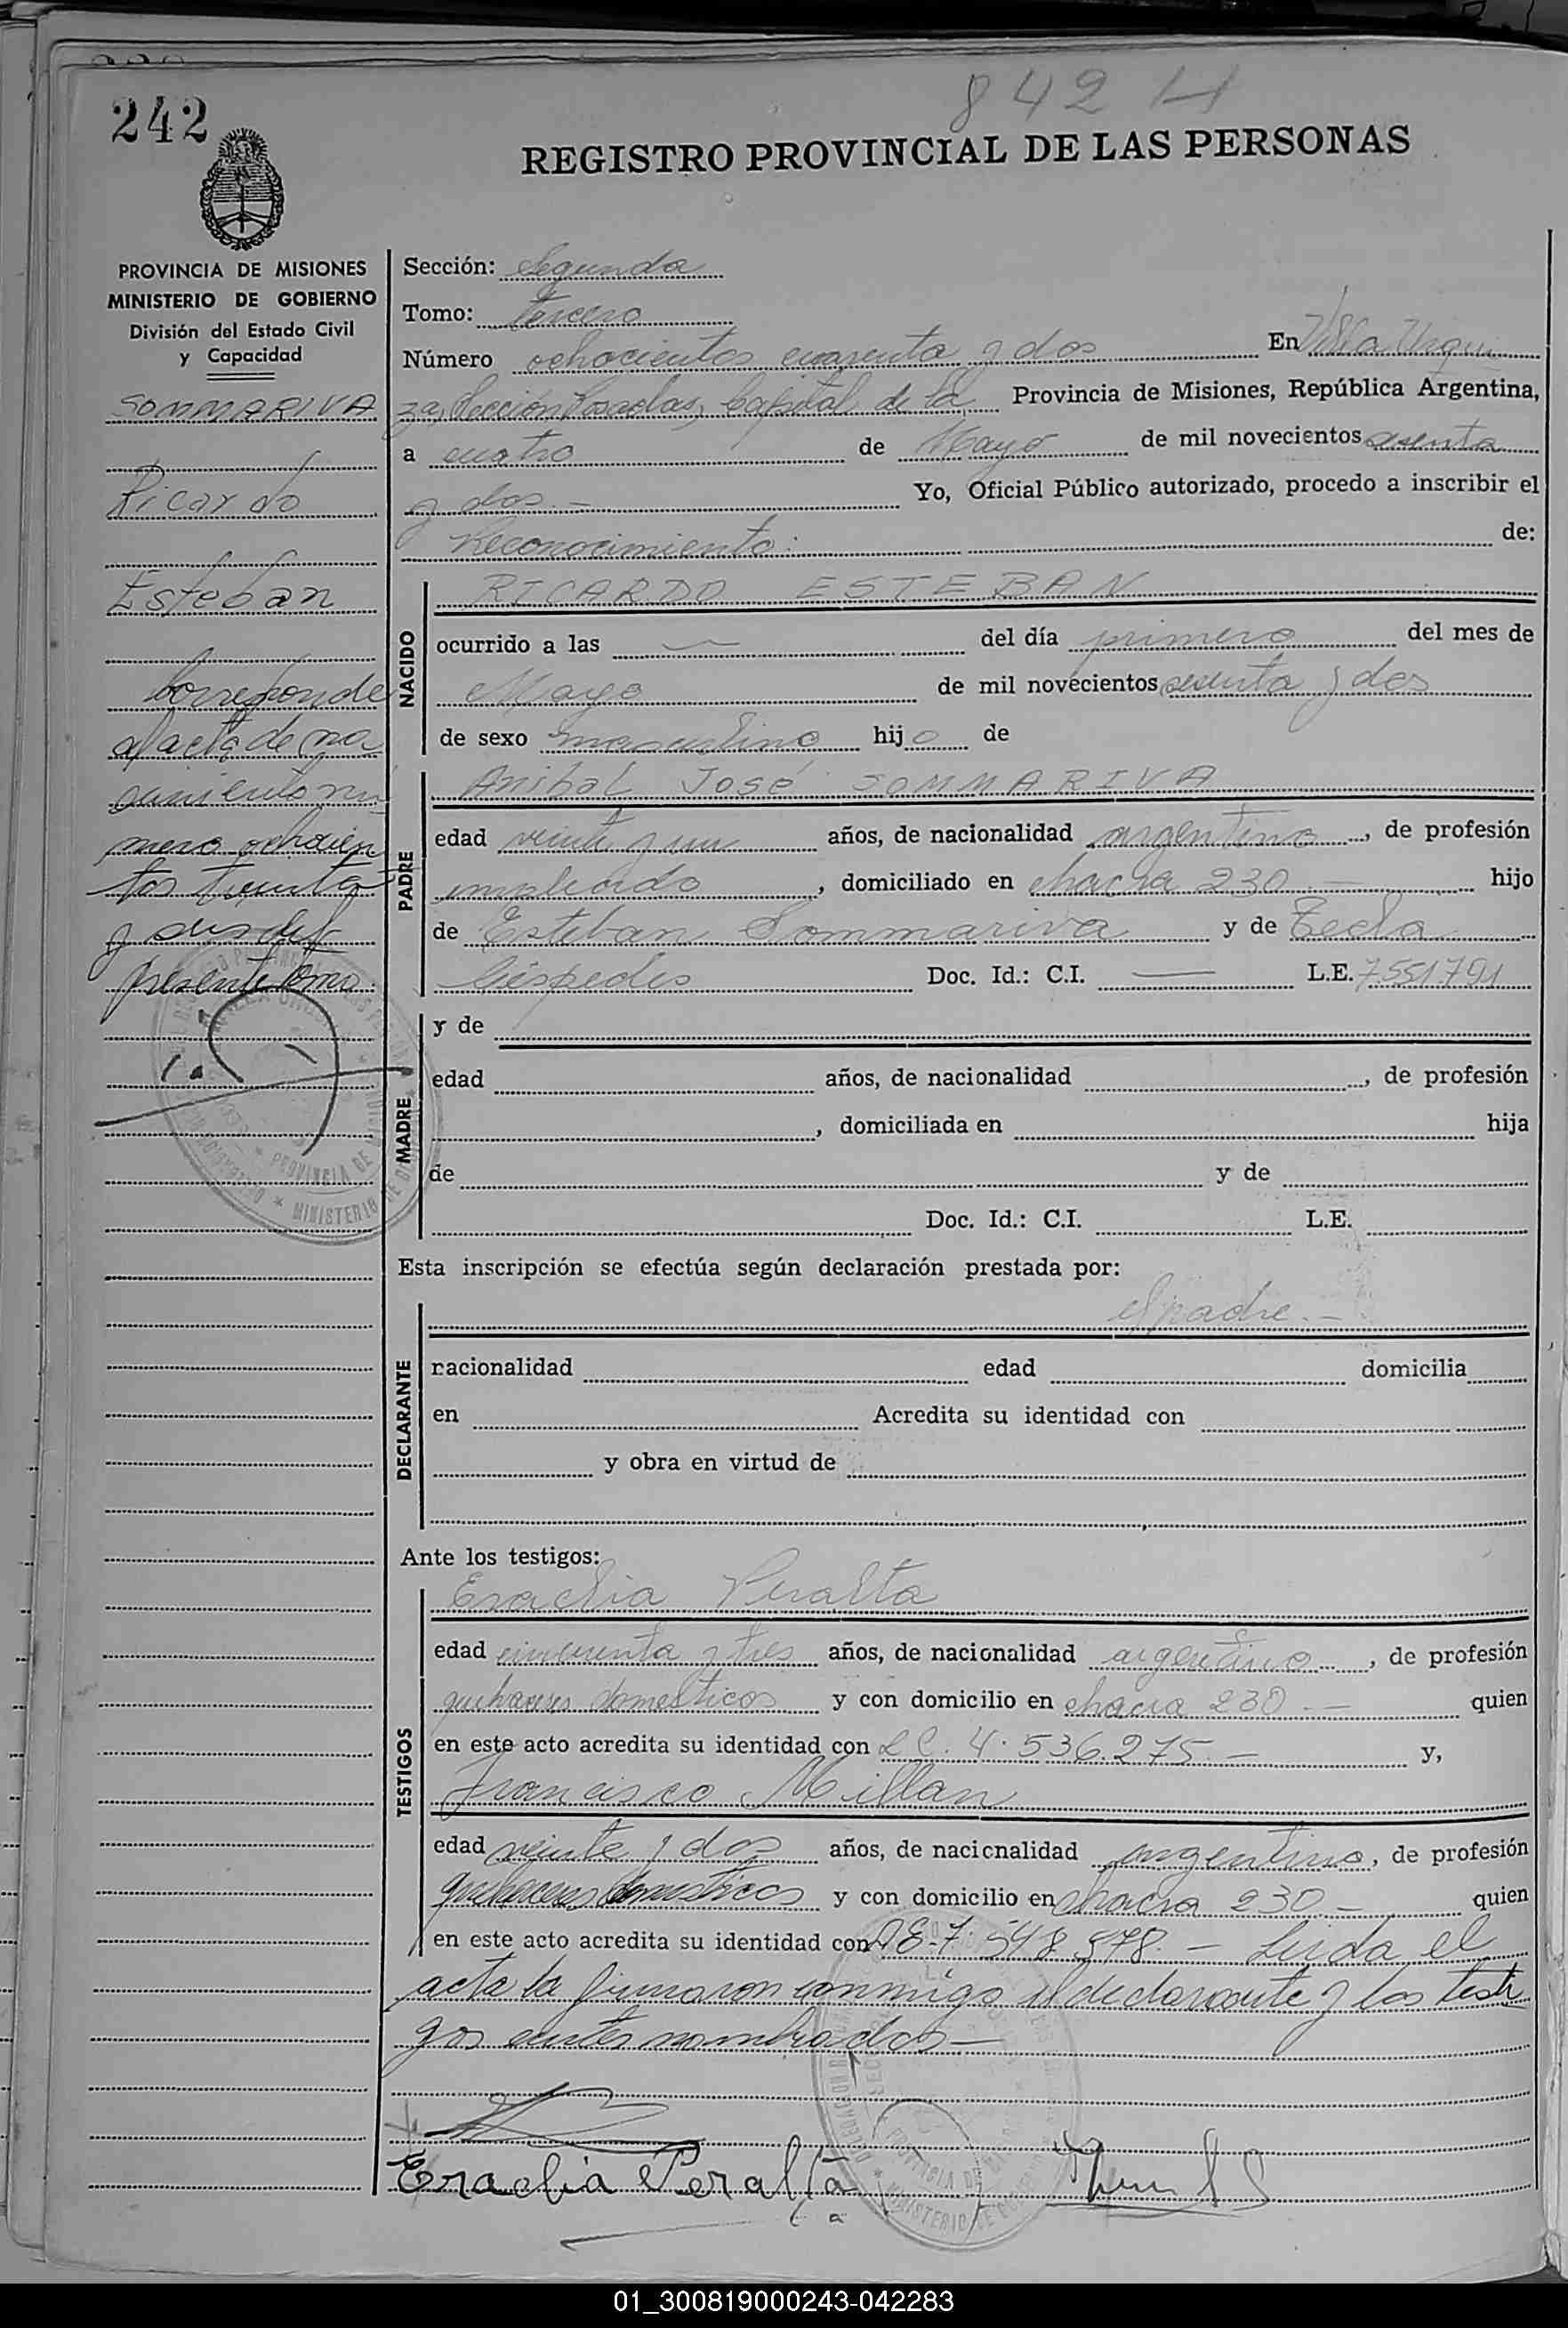 842 H
242
REGISTRO PROVINCIAL DE LAS PERSONAS
PROVINCIA DE MISIONES
MINISTERIO DE GOBIERNO
División del Estado Civil
y Capacidad
SOMMARIVA
Ricardo
Esteban
Corresponde
al acta de na
cimiento nú
mero ochocien
tos treinta
y seis del
presente tomo.
Sección: Segunda
Tomo: tercero
Número ochocientos cuarenta y dos En Villa Urqui
za, Sección Posadas, Capital de la Provincia de Misiones, República Argentina,
a cuatro de Mayo de mil novecientos sesenta
y dos.— Yo, Oficial Público autorizado, procedo a inscribir el
Reconocimiento: de:
NACIDO
RICARDO ESTEBAN
ocurrido a las — del día primero del mes de
Mayo de mil novecientos sesenta y dos
de sexo masculino hijo de
PADRE
Anibal José SOMMARIVA
edad veinte y un años, de nacionalidad argentino, de profesión
empleado, domiciliado en chacra 230.— hijo
de Esteban Sommariva y de Tecla
Céspedes Doc. Id.: C.I. — L.E. 7.551.791
MADRE
y de
edad años, de nacionalidad , de profesión
, domiciliada en hija
de y de
Doc. Id.: C.I. L.E.
Esta inscripción se efectúa según declaración prestada por:
el padre.—
DECLARANTE
nacionalidad edad domicilia
en Acredita su identidad con
y obra en virtud de
Ante los testigos:
TESTIGOS
Eraclia Peralta
edad cincuenta y tres años, de nacionalidad argentina, de profesión
quehaceres domesticos y con domicilio en chacra 230.— quien
en este acto acredita su identidad con L.C. 4.536.275.— y,
Francisco Millan
edad veinte y dos años, de nacionalidad argentino, de profesión
quehaceres domesticos y con domicilio en chacra 230.— quien
en este acto acredita su identidad con 7.548.578.— Leida el
acta la firmaron conmigo el declarante y los testi
gos antes nombrados—
Eraclia Peralta
01_300819000243-042283